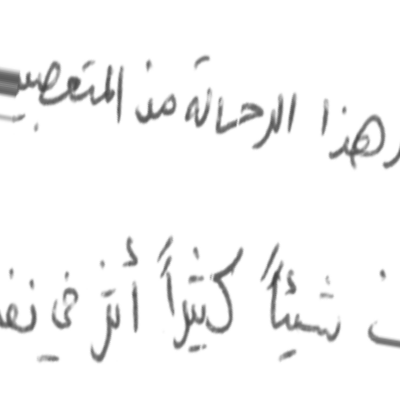 هذا الرحالة من المتعصبي
شيئاً كثيراً أثر في نف